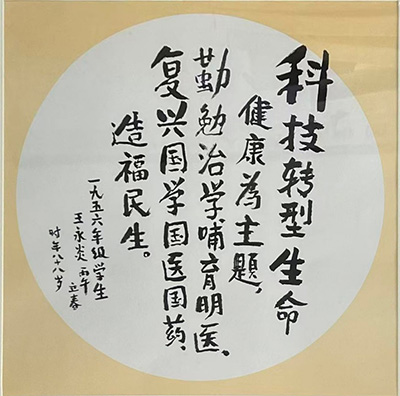 科技转型生命
健康为主题，
勤勉治学哺育明医、
复兴国学国医国药、
造福民生。
一九五六年级学生
王永炎 丙午 立春
时年八十八岁